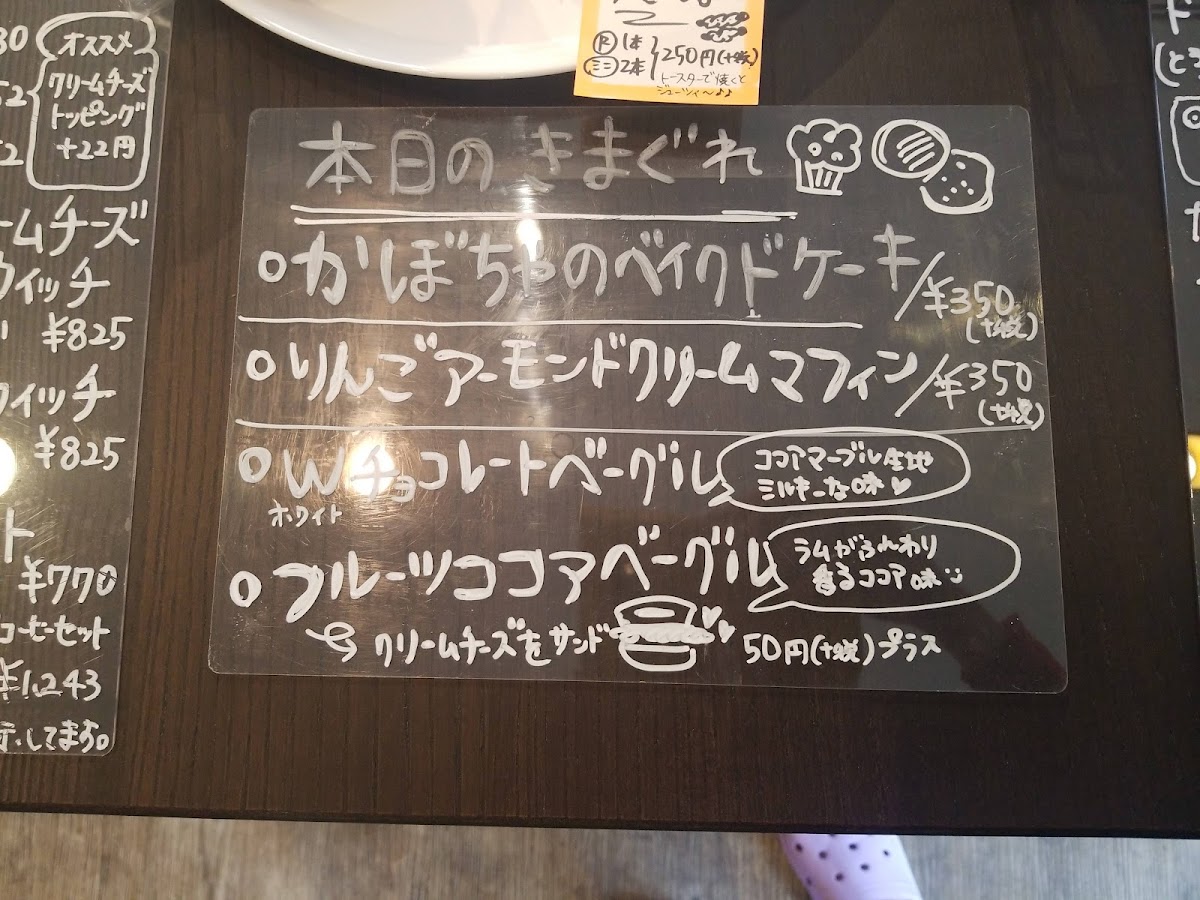 オススメ
クリームチーズ
トッピング
+22円
ームチーズ
ウィッチ
¥825
ウィッチ
¥825
ト
¥770
コーヒーセット
¥1,243
示してます。
1本
ミニ 2本
250円(+税)
トースターで焼くと
ジューシィ〜♪♪
本日のきまぐれ
かぼちゃのベイクドケーキ/¥350
(+税)
りんごアーモンドクリームマフィン/¥350
(+税)
Wチョコレートベーグル
ホワイト
ココアマーブル生地
ミルキーな味♡
フルーツココアベーグル
ラムがふんわり
香るココア味
クリームチーズをサンド
50円(+税)プラス